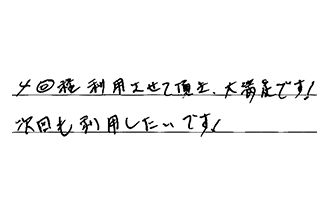 4回程利用させて頂き、大満足です!
次回も利用したいです!